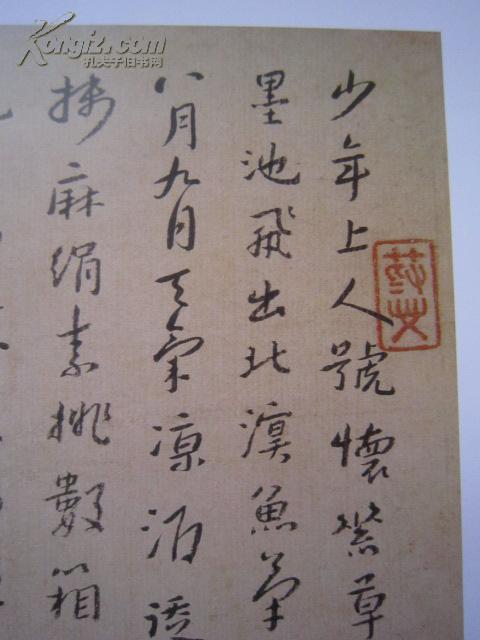 Kongfz.com
孔夫子旧书网
少年上人號懷素草
墨池飛出北溟魚筆
八月九月天氣涼酒
牋麻絹素排數箱